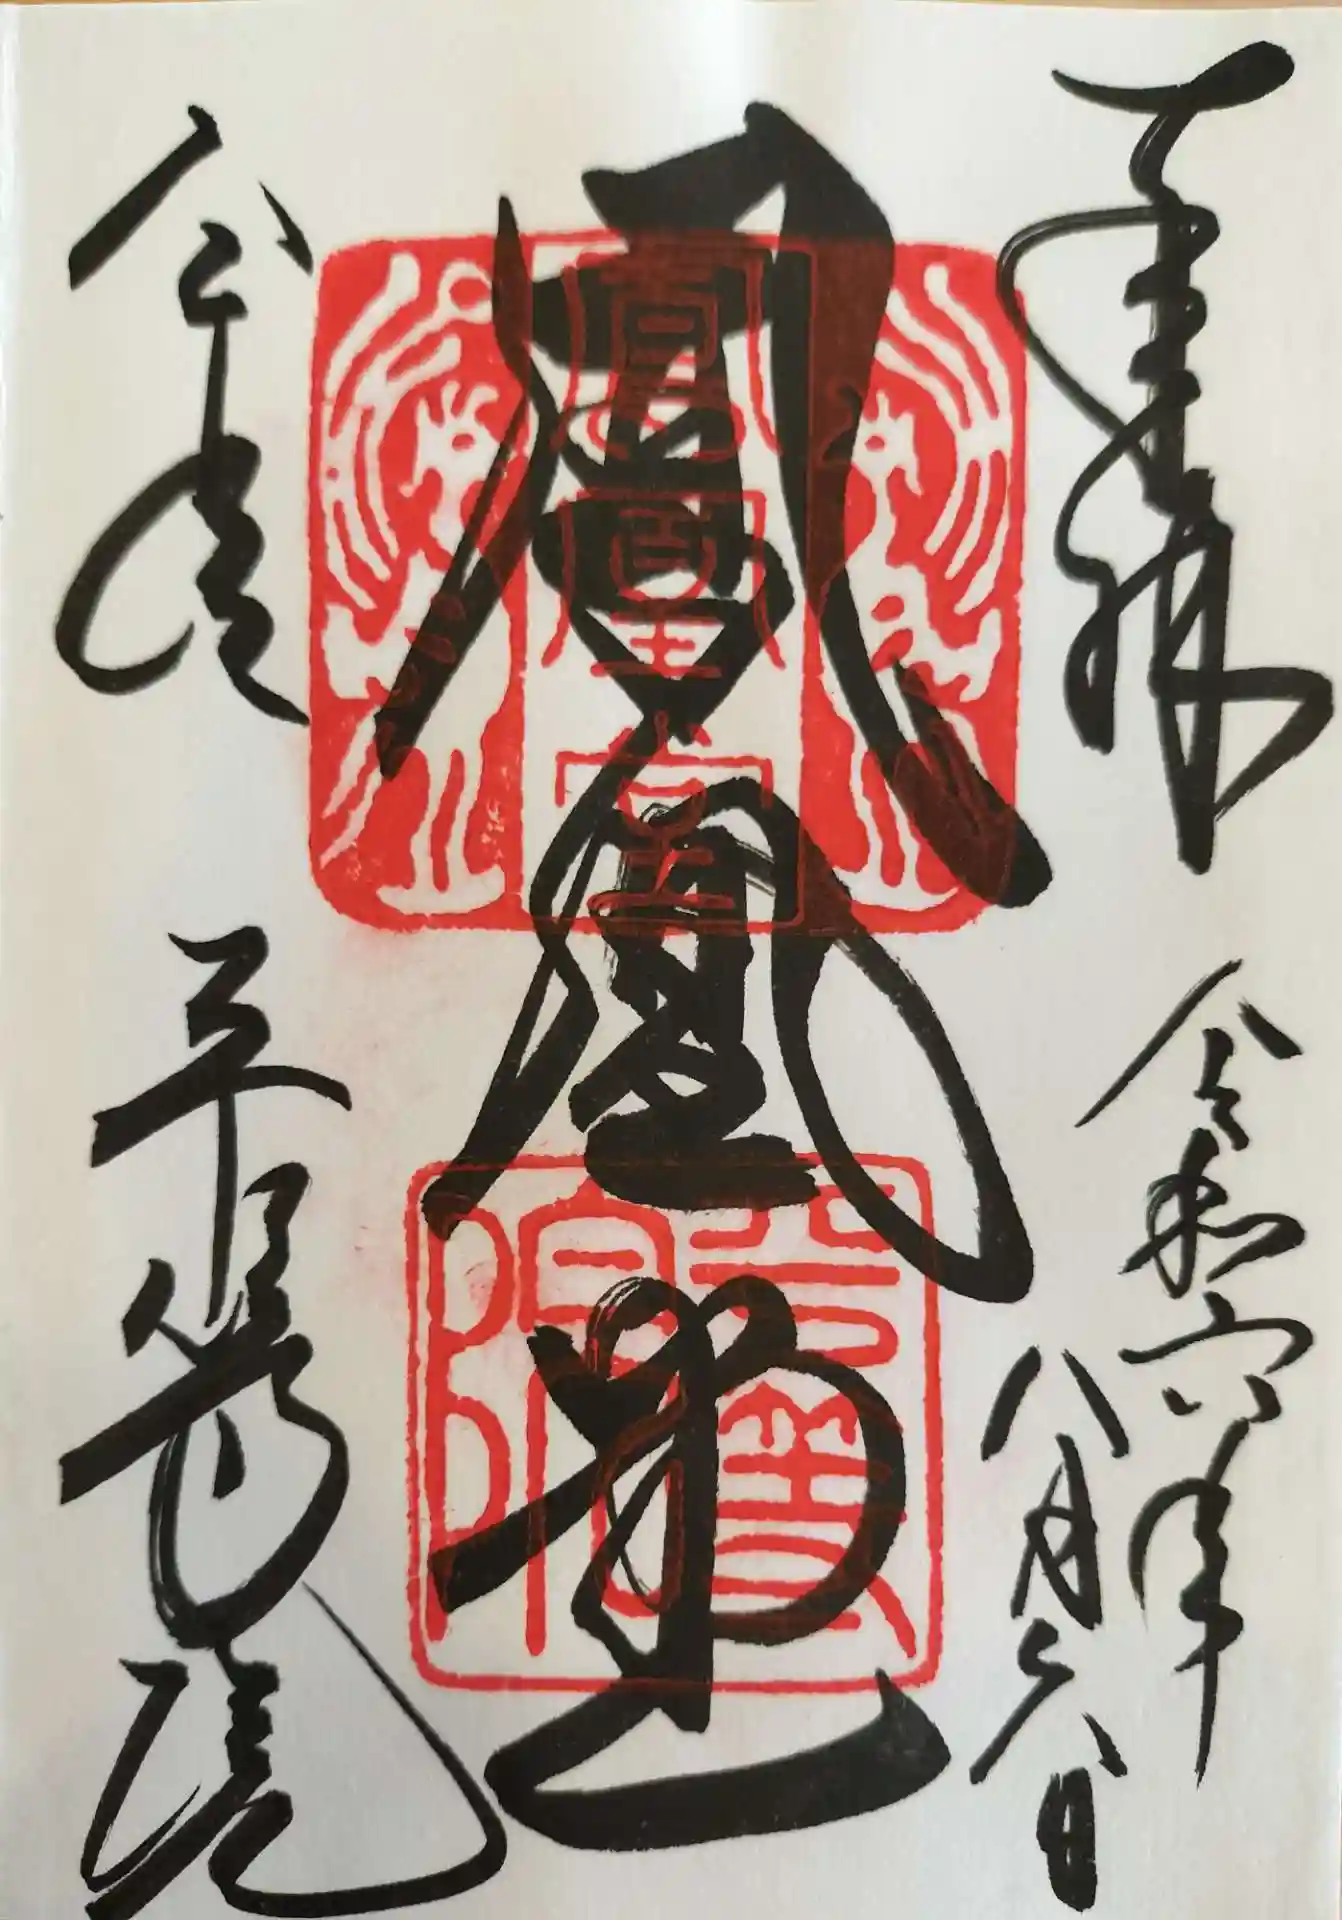 奉拝
令和六年
八月六日
鳳凰堂
平等院
平等院印